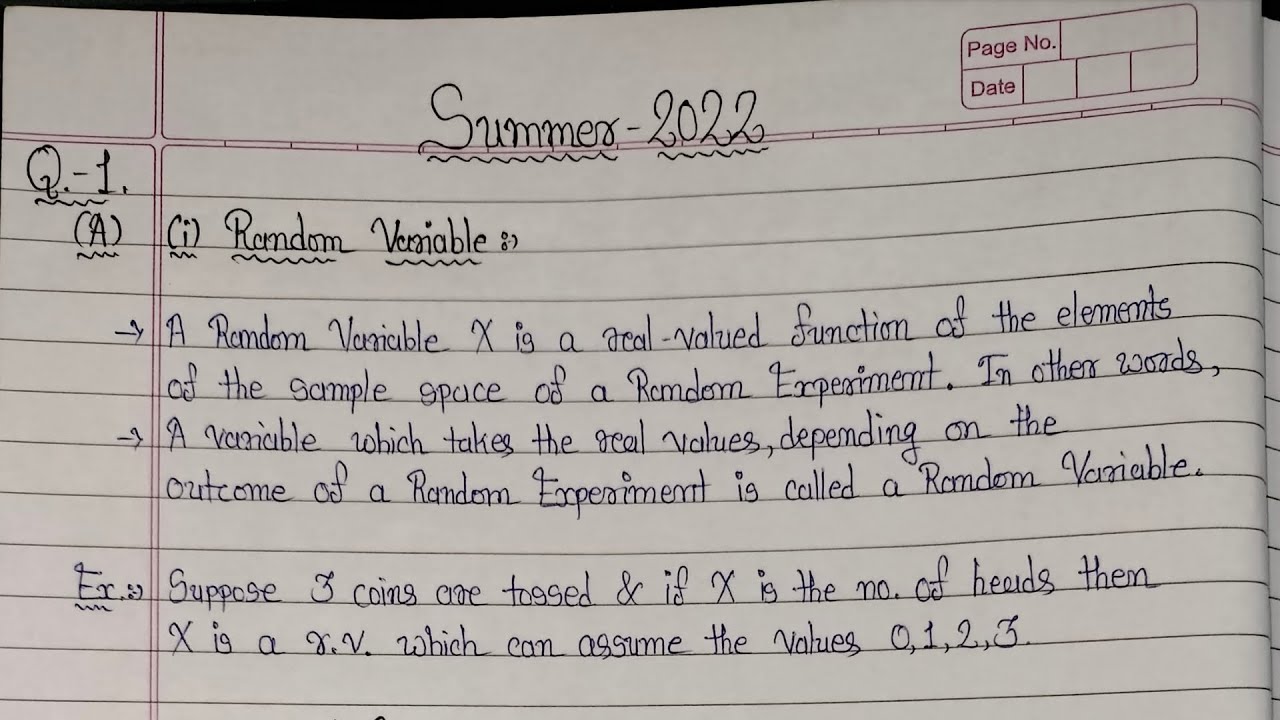 Page No.
Date
Summer-2022
Q.-1.
(A) (i) Random Variable :-)
→ A Random Variable X is a real-valued function of the elements
of the sample space of a Random Experiment. In other words,
→ A variable which takes the real values, depending on the
outcome of a Random Experiment is called a Random Variable.
Ex. :-) Suppose 3 coins are tossed & if X is the no. of heads then
X is a r.v. which can assume the values 0,1,2,3.